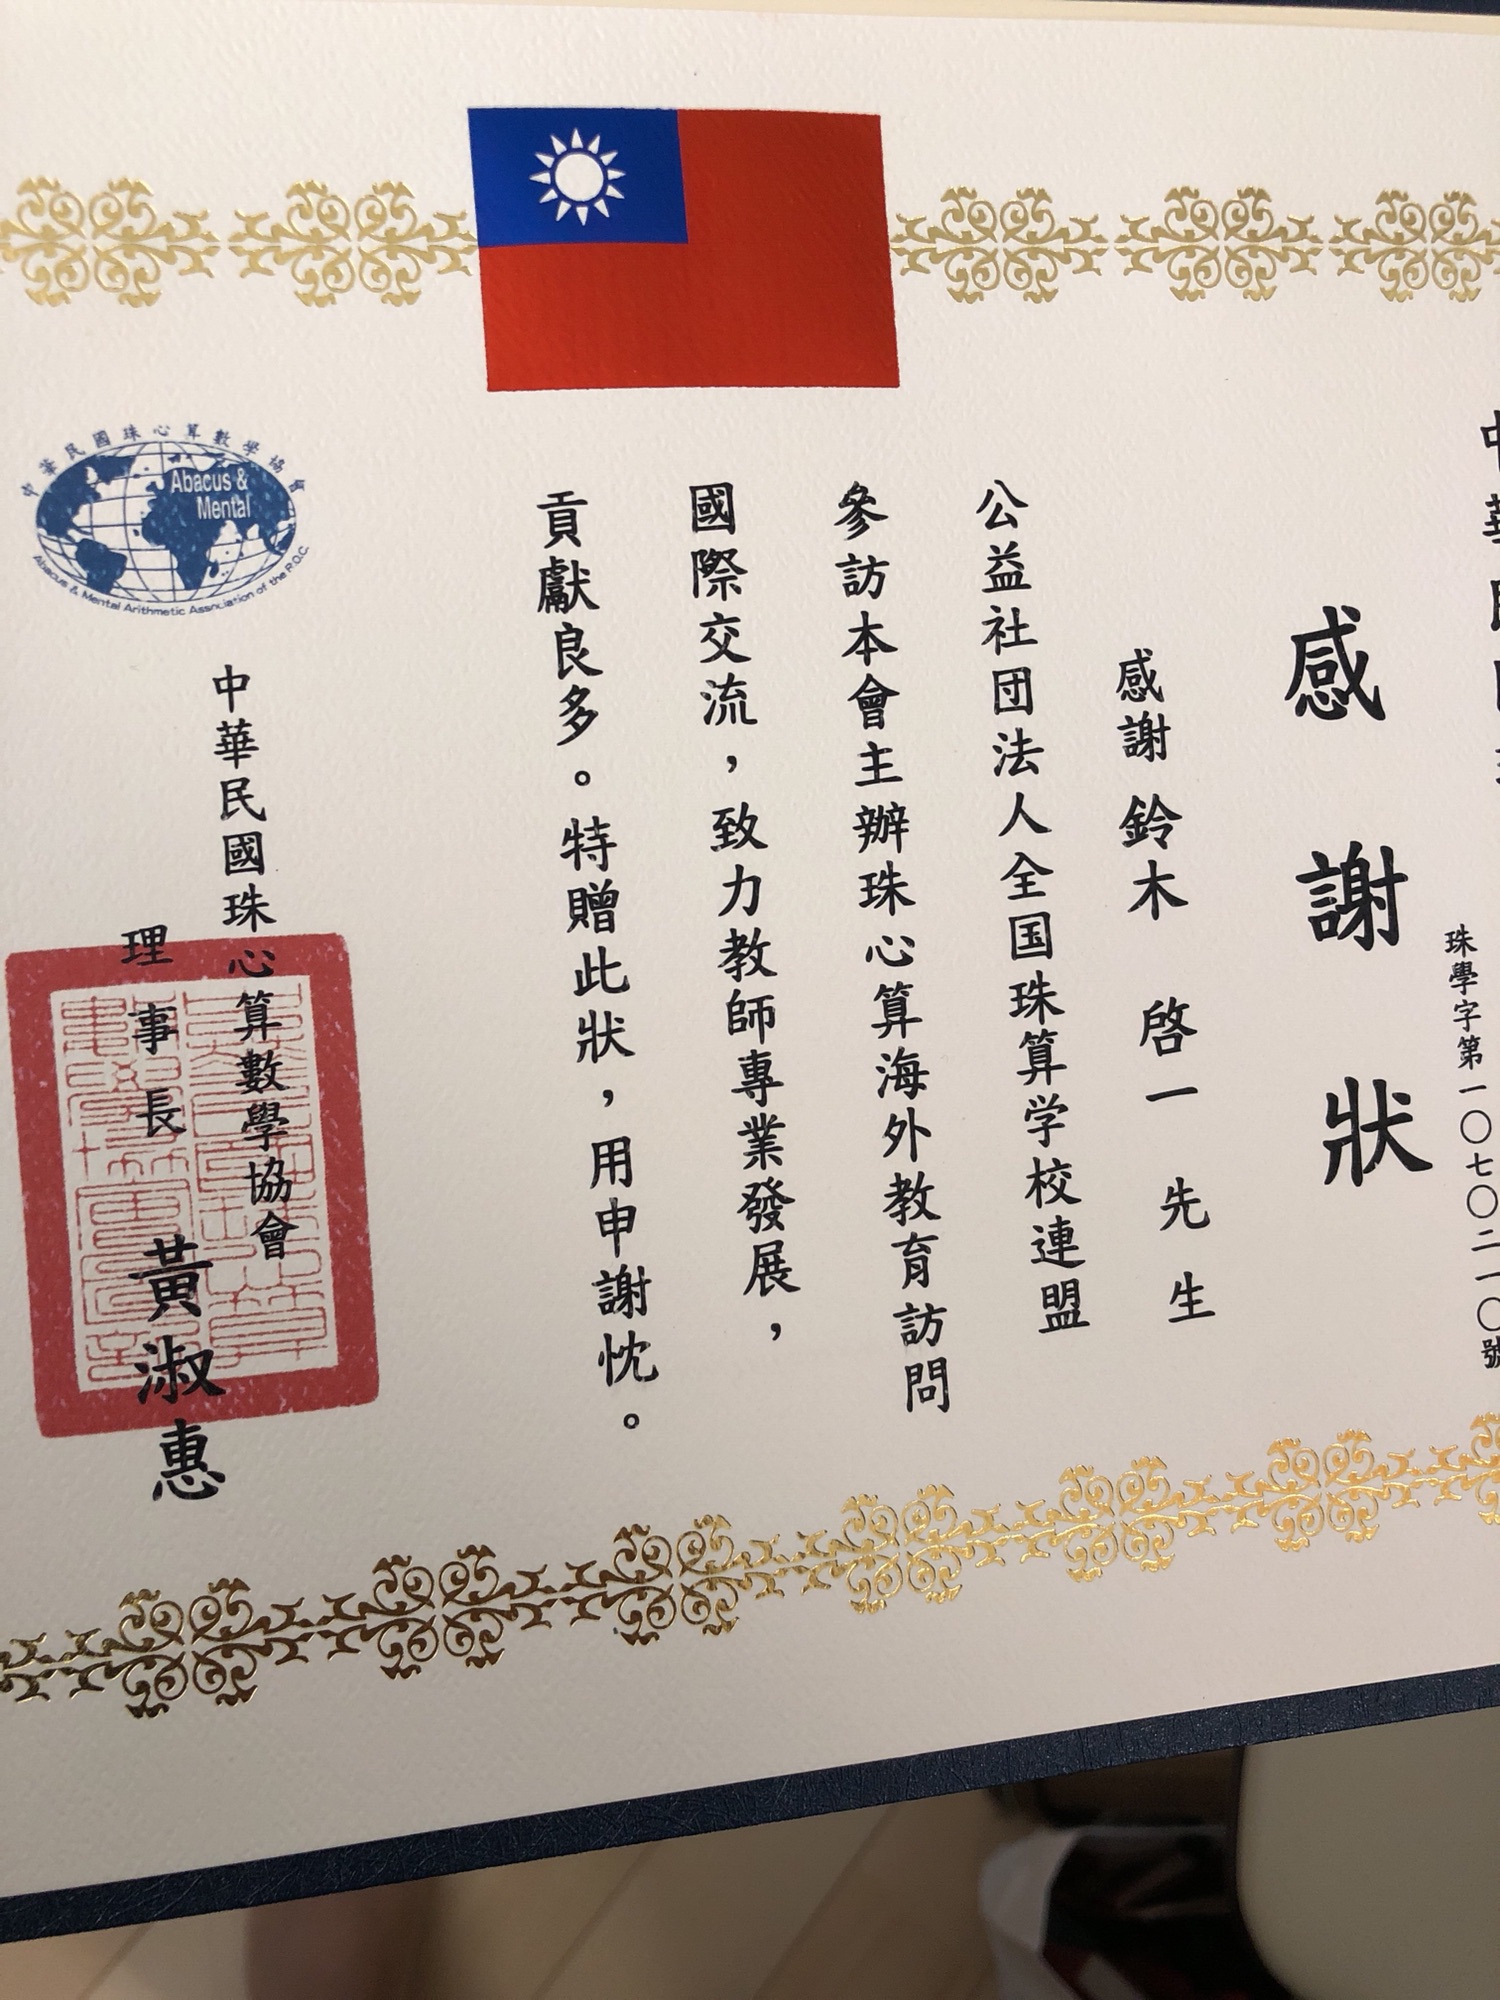 中華民國珠
珠學字第一〇七〇二一〇號
感謝狀
感謝 鈴木 啓一 先生
公益社団法人全国珠算学校連盟
參訪本會主辦珠心算海外教育訪問
國際交流，致力教師專業發展，
貢獻良多。特贈此狀，用申謝忱。
中華民國珠心算數學協會
Abacus &
Mental
Abacus & Mental Arithmetic Association of the R.O.C.
中華民國珠心算數學協會
理事長 黃淑惠